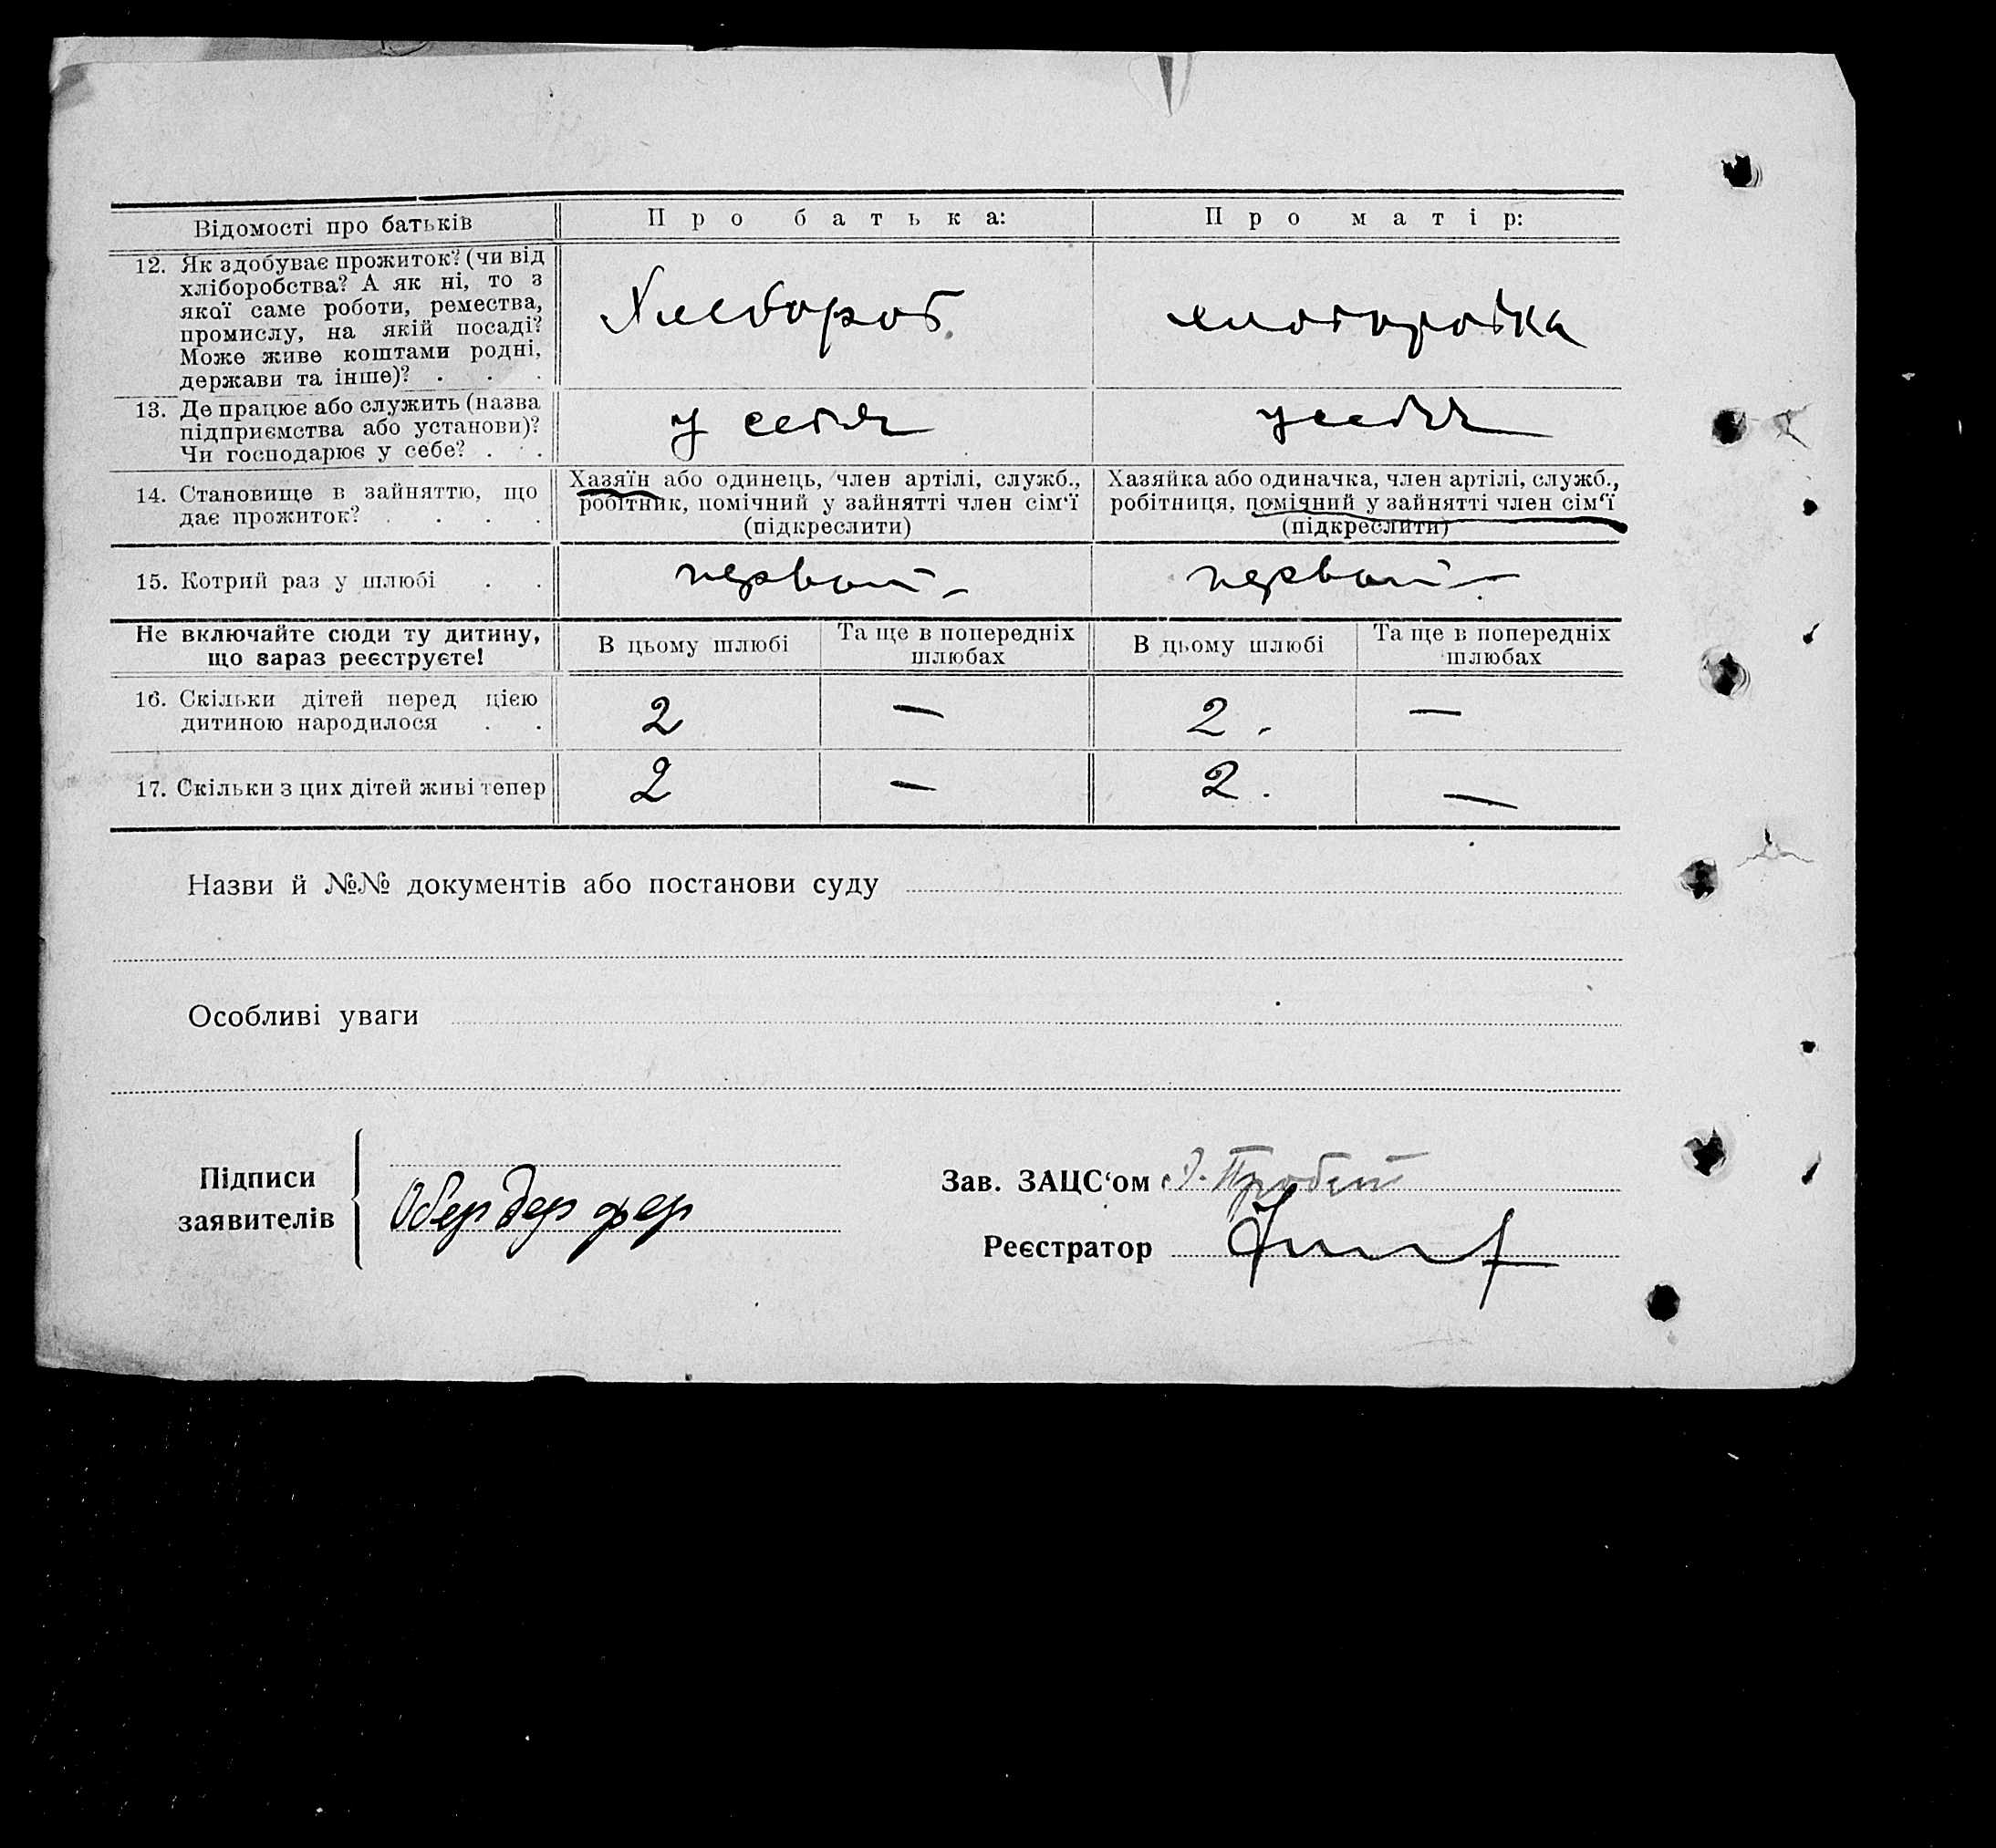 Відомості про батьків
Про батька:
Про матір:
12. Як здобуває прожиток? (чи від
хліборобства? А як ні, то з
якої саме роботи, ремества,
промислу, на якій посаді?
Може живе коштами родні,
держави та інше)? . . .
Хлебороб
хлеборобка
13. Де працює або служить (назва
підприємства або установи)?
Чи господарює у себе? . . .
у себя
у себя
14. Становище в зайняттю, що
дає прожиток? . . . .
Хазяїн або одинець, член артілі, служб.,
робітник, помічний у зайнятті член сім‘ї
(підкреслити)
Хазяйка або одиначка, член артілі, служб.,
робітниця, помічний у зайнятті член сім‘ї
(підкреслити)
15. Котрий раз у шлюбі . .
первый –
первый –
Не включайте сюди ту дитину,
що зараз реєструєте!
В цьому шлюбі
Та ще в попередніх
шлюбах
В цьому шлюбі
Та ще в попередніх
шлюбах
16. Скільки дітей перед цією
дитиною народилося . .
2 — 2. —
17. Скільки з цих дітей живі тепер
2 — 2. —
Назви й №№ документів або постанови суду
Особливі уваги
Підписи
заявителів
Обердерфер
Зав. ЗАЦС‘ом
Реєстратор